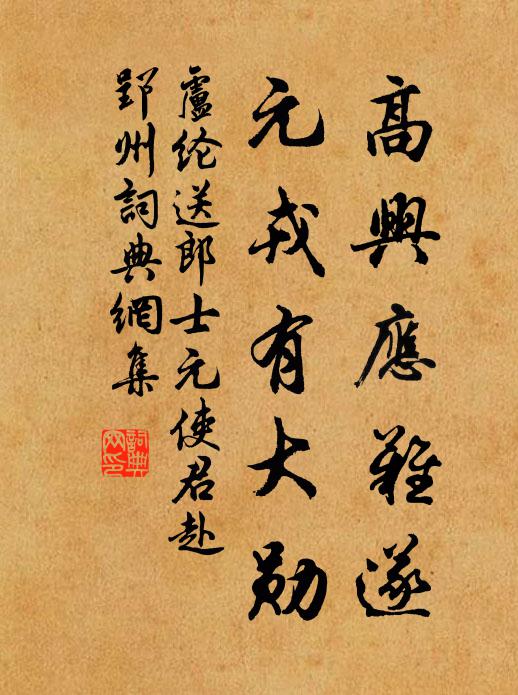 高興應難遂
元戎有大勋
盧纶送郎士元使君赴
郢州詞典網集
詞典網印